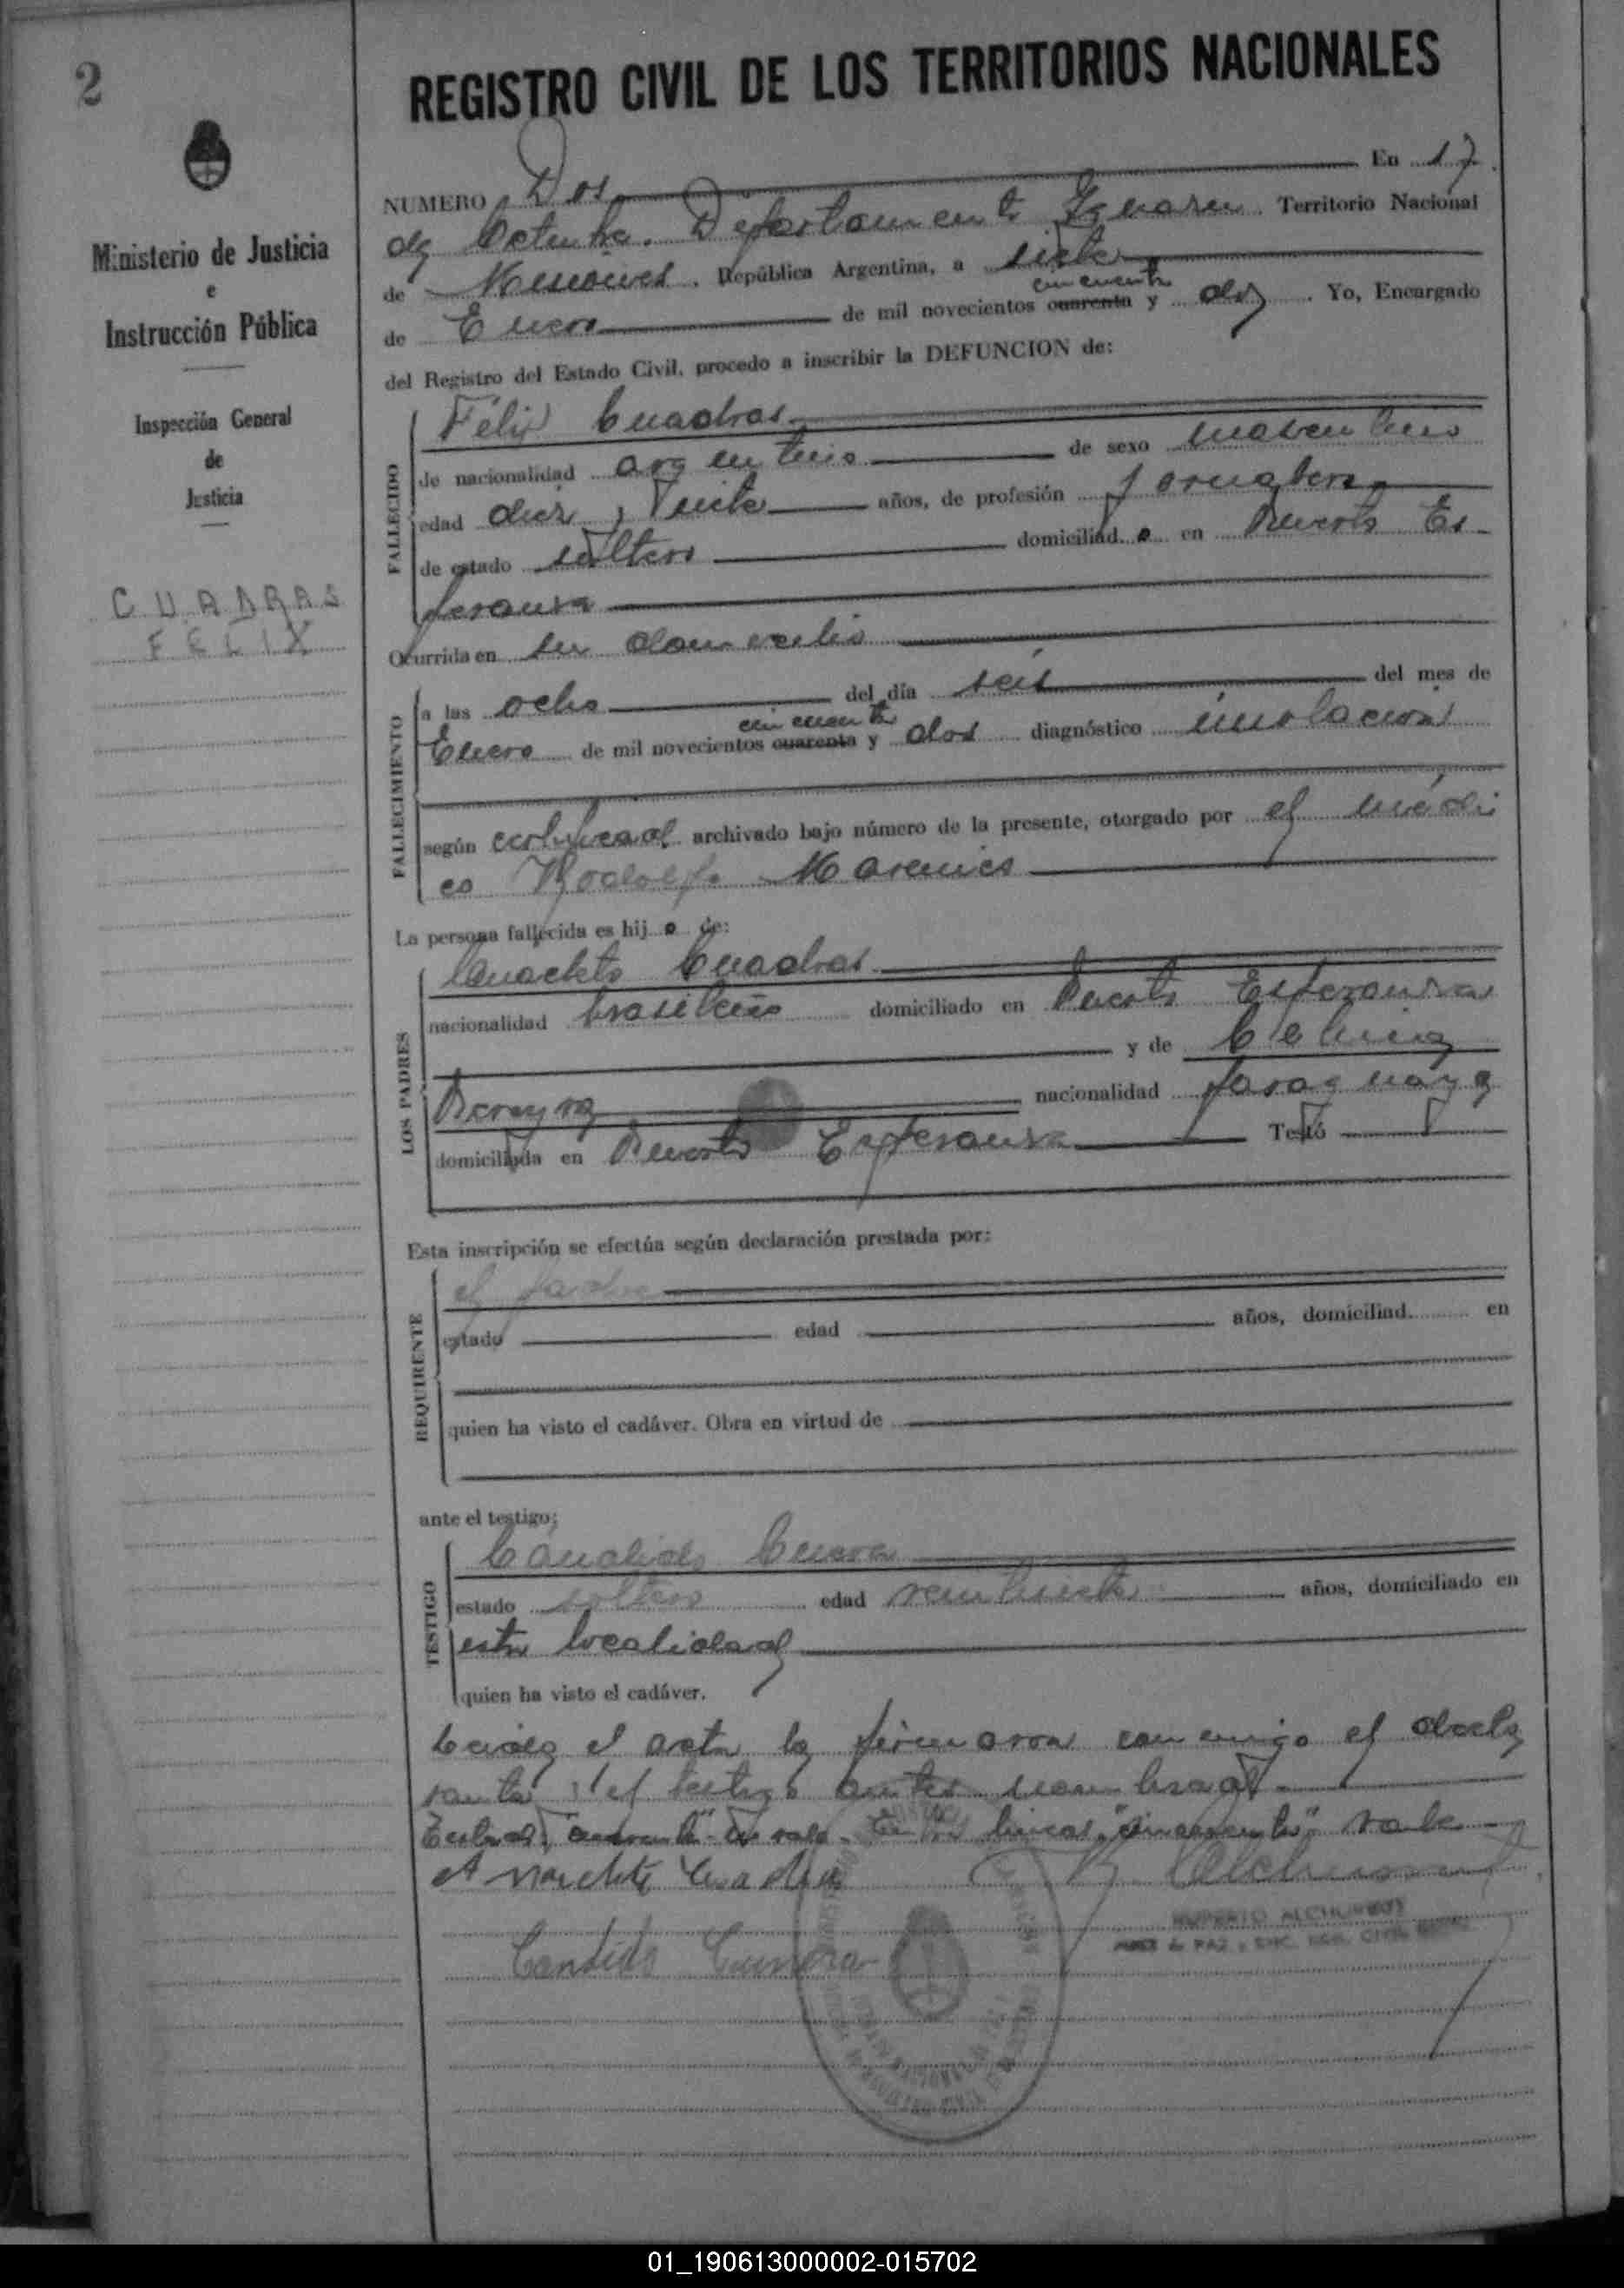 2
REGISTRO CIVIL DE LOS TERRITORIOS NACIONALES
Ministerio de Justicia
e
Instrucción Pública
Inspección General
de
Justicia
CUADRAS
FELIX
NUMERO Dos En 17
de Octubre. Departamento Iguazu Territorio Nacional
de Misiones. República Argentina, a siete
cincuenta
de Enero de mil novecientos cuarenta y dos. Yo, Encargado
del Registro del Estado Civil, procedo a inscribir la DEFUNCION de:
FALLECIDO
Félix Cuadras
de nacionalidad argentino de sexo masculino
edad diez y siete años, de profesión jornalero
de estado soltero domiciliad o en Puerto Es-
peranza
Ocurrida en su domicilio
FALLECIMIENTO
a las ocho del día seis del mes de
cincuenta
Enero de mil novecientos cuarenta y dos diagnóstico insolación
según certificad archivado bajo número de la presente, otorgado por el médi
co Rodolfo
La persona fallecida es hij o de:
LOS PADRES
Cuadras
nacionalidad brasileño domiciliado en Puerto Esperanza
y de
Pereyra nacionalidad paraguaya
domiciliada en Puerto Esperanza Testó
Esta inscripción se efectúa según declaración prestada por:
REQUIRENTE
el padre
estado edad años, domiciliad en
quien ha visto el cadáver. Obra en virtud de
ante el testigo:
TESTIGO
Candido
estado soltero edad veintisiete años, domiciliado en
esta localidad
quien ha visto el cadáver.
Leida el acta la firmaron conmigo el decla
rante y el testigo antes nombrad
Testado: "cuarenta" no vale. Entre lineas "cincuenta" vale
Candido
RUPERTO
JUEZ de PAZ y ENC. REG. CIVIL
01_190613000002-015702